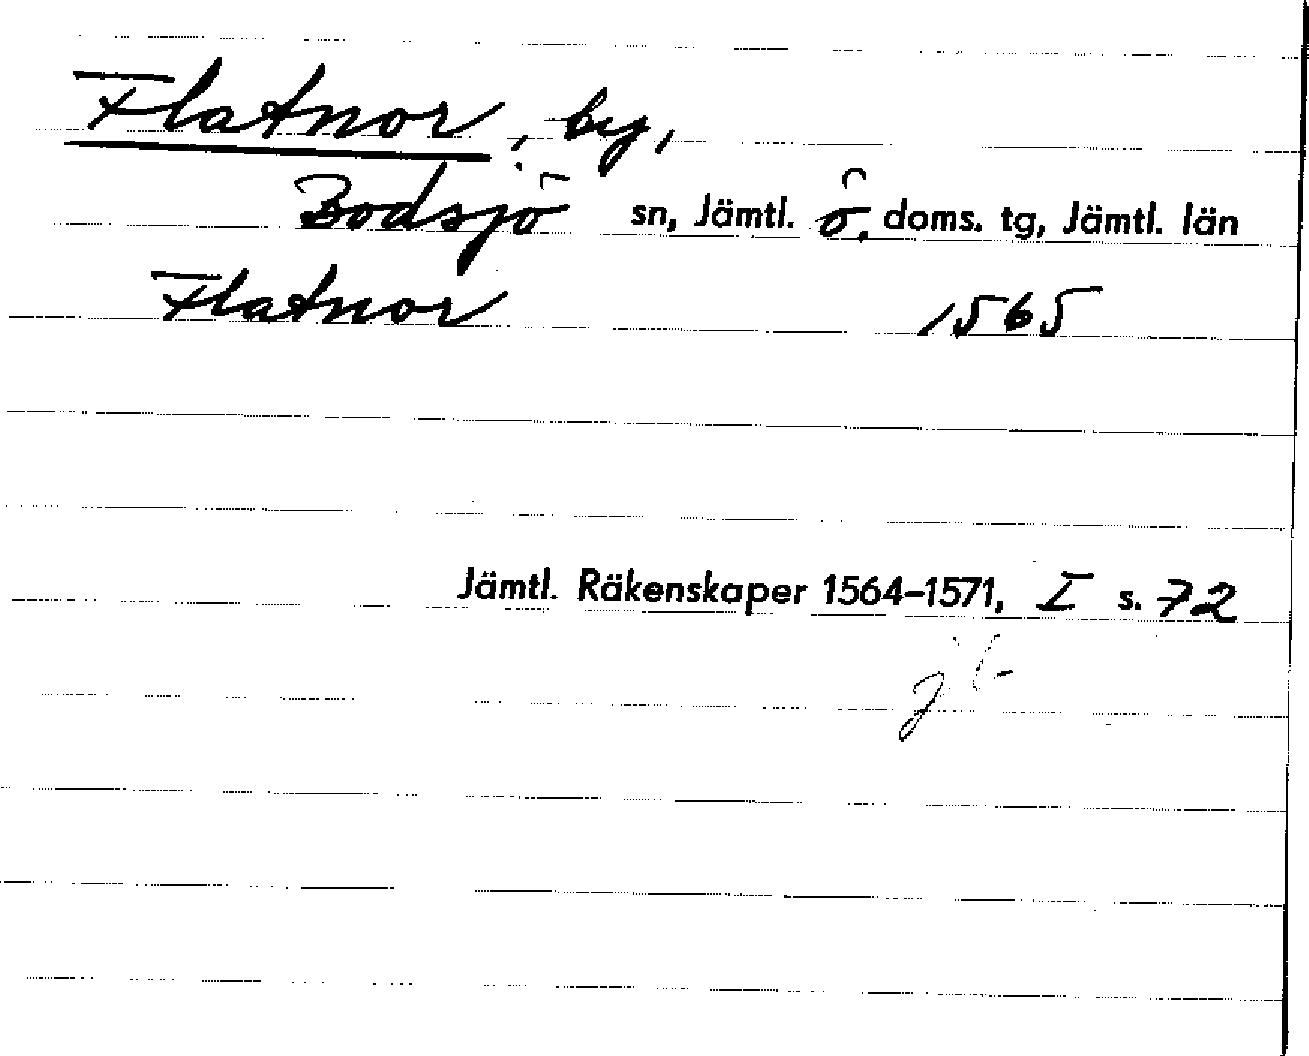 Flatnor, by,
Bodsjö sn, Jämtl. ö. doms. tg, Jämtl. län
Flatnor 1565
Jämtl. Räkenskaper 1564–1571, I s. 72